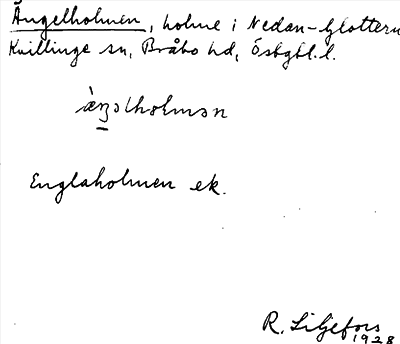 Ängelholmen, holme i Nedan-Glottern
Kvillinge sn, Bråbo hd, Ösbgtl. l.
ä̀ŋəlholəmən
Englaholmen ek.
R. Liljefors
1928